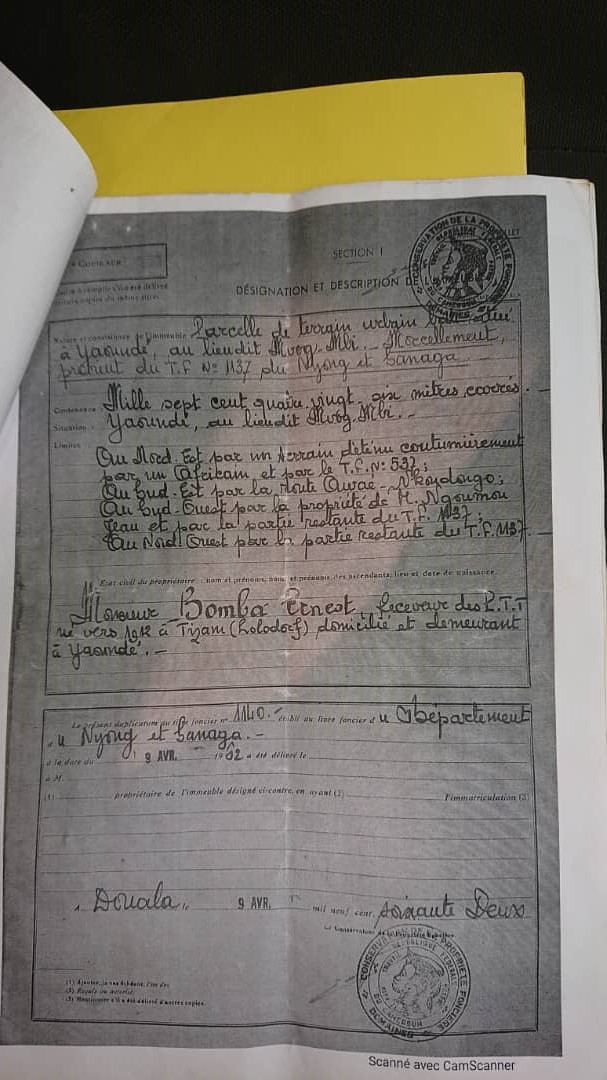 COPIEAUX
SECTION I
DÉSIGNATION ET DESCRIPTION DE L'
CONSERVATION DE LA PROPRIÉTÉ FONCIÈRE
DU CAMEROUN
DOMAINES
Nature et consistance de l'immeuble Parcelle de terrain urbain
à Yaoundé, au lieudit Mvog-Mbi. - Morcellement,
du T.F. N° 1137 du Nyong et Sanaga
Contenance : Mille sept cent quatre vingt six mètres carrés. -
Situation : Yaoundé, au lieudit Mvog-Mbi. -
Limites :
Au Nord-Est par un terrain détenu coutumièrement
par un Africain et par le T.F. N° 532 ;
Au Sud-Est par la route Awae - Nkoydongo ;
Au Sud-Ouest par la propriété de M. Ngoumou
Jean et par la partie restante du T.F. 1137 ;
Au Nord-Ouest par la partie restante du T.F. 1137. -
Etat civil du propriétaire : nom et prénoms, noms et prénoms des ascendants, lieu et date de naissance.
Monsieur Bomba Ernest, receveur des P.T.T
né vers 1912 à Tizam (Lolodorf) domicilié et demeurant
à Yaoundé. -
Le présent duplicatum au titre foncier n° 1140. - établi au livre foncier du Département
du Nyong et Sanaga. -
à la date du 9 AVR. 1962 a été délivré le
à M.
(1) propriétaire de l'immeuble désigné ci-contre, en ayant (2) l'immatriculation (3)
A Douala le 9 AVR. mil neuf cent soixante Deux
Le Conservateur de la Propriété Foncière,
CONSERVATION DE LA PROPRIÉTÉ FONCIÈRE
DU CAMEROUN
DOMAINES
(1) Ajouter, le cas échéant, l'un des
(2) Requis ou autorisé
(3) Mentionner s'il a été délivré d'autres copies.
Scanné avec CamScanner